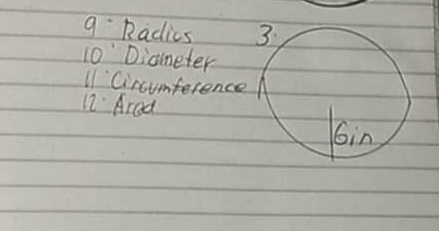 9. Radics
10. Diameter
11. Circumference
12. Area
3.
6in